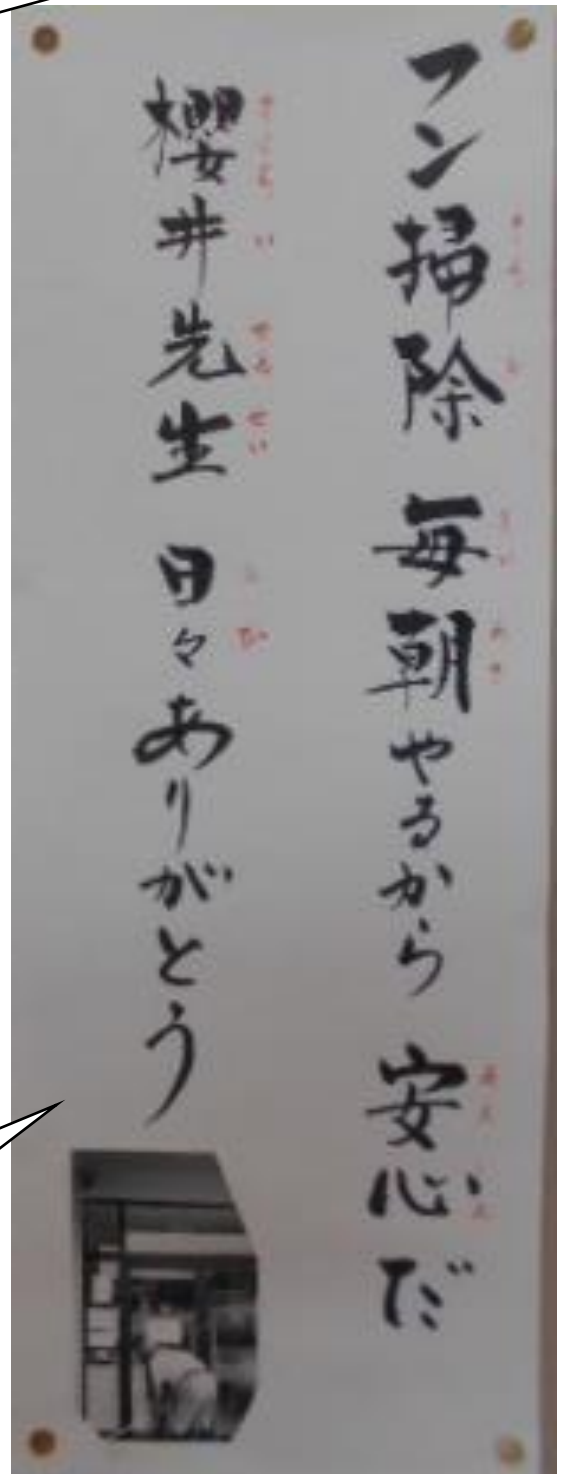 フン掃除 毎朝やるから 安心だ
櫻井先生 日々ありがとう